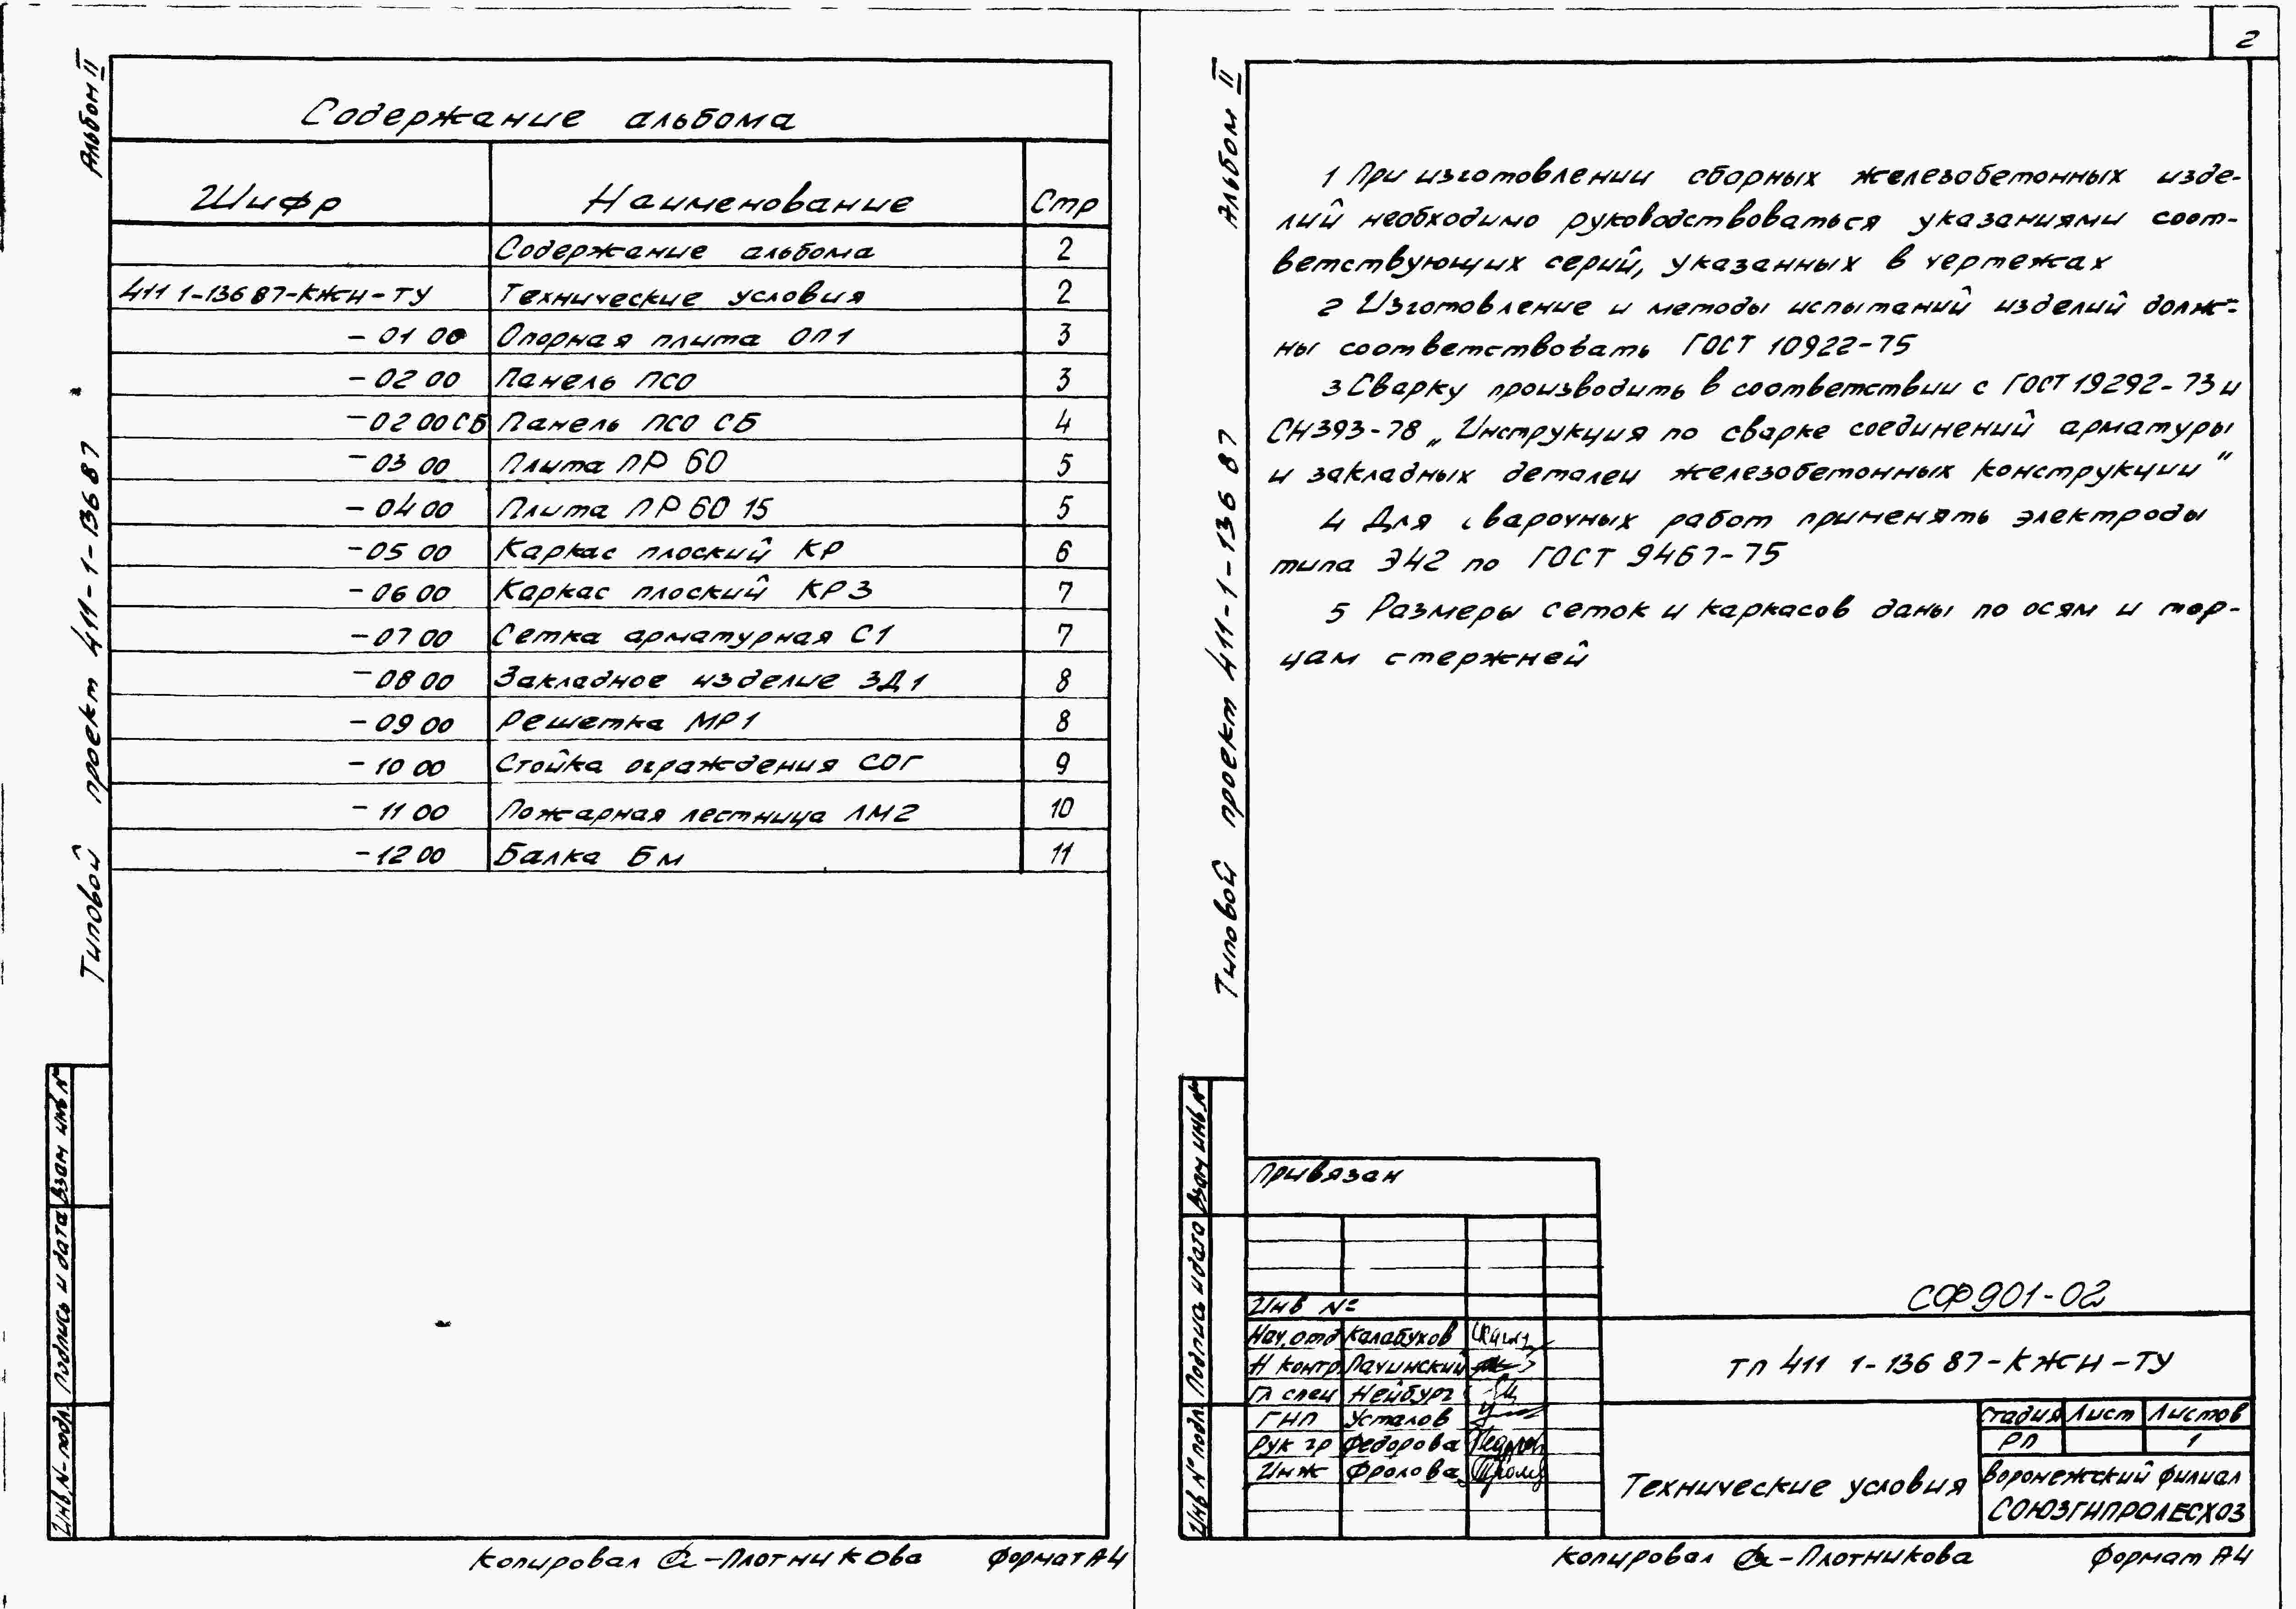 Альбом II
Типовой проект 411-1-136 87
Содержание альбома
Шифр Наименование Стр
Содержание альбома 2
411 1-136 87-КЖИ-ТУ Технические условия 2
- 01 00 Опорная плита ОП1 3
- 02 00 Панель ПСО 3
- 02 00 СБ Панель ПСО СБ 4
- 03 00 Плита ПР 60 5
- 04 00 Плита ПР 60 15 5
- 05 00 Каркас плоский КР 6
- 06 00 Каркас плоский КР3 7
- 07 00 Сетка арматурная С1 7
- 08 00 Закладное изделие ЗД1 8
- 09 00 Решетка МР1 8
- 10 00 Стойка ограждения СОГ 9
- 11 00 Пожарная лестница ЛМ2 10
- 12 00 Балка Бм 11
Взам инв №
Подпись и дата
Инв. № подл.
Копировал -Плотникова Формат А4
2
Альбом II
Типовой проект 411-1-136 87
1 При изготовлении сборных железобетонных изде-
лий необходимо руководствоваться указаниями соот-
ветствующих серий, указанных в чертежах
2 Изготовление и методы испытаний изделий долж-
ны соответствовать ГОСТ 10922-75
3 Сварку производить в соответствии с ГОСТ 19292-73 и
СН393-78 „Инструкция по сварке соединений арматуры
и закладных деталеи железобетонных конструкции"
4 Для сварочных работ применять электроды
типа Э42 по ГОСТ 9467-75
5 Размеры сеток и каркасов даны по осям и тор-
цам стержней
Взам инв №
Подпись и дата
Инв № подл.
Привязан
Инв №
СФ901-02
Нач. отд Калабухов
Н контр Лачинский
Гл спец Нейбург
ГИП Усталов
Рук гр Федорова
Инж Фролова
ТП 411 1-136 87-КЖИ-ТУ
Технические условия
Стадия Лист Листов
РП 1
Воронежский филиал
СОЮЗГИПРОЛЕСХОЗ
Копировал -Плотникова Формат А4